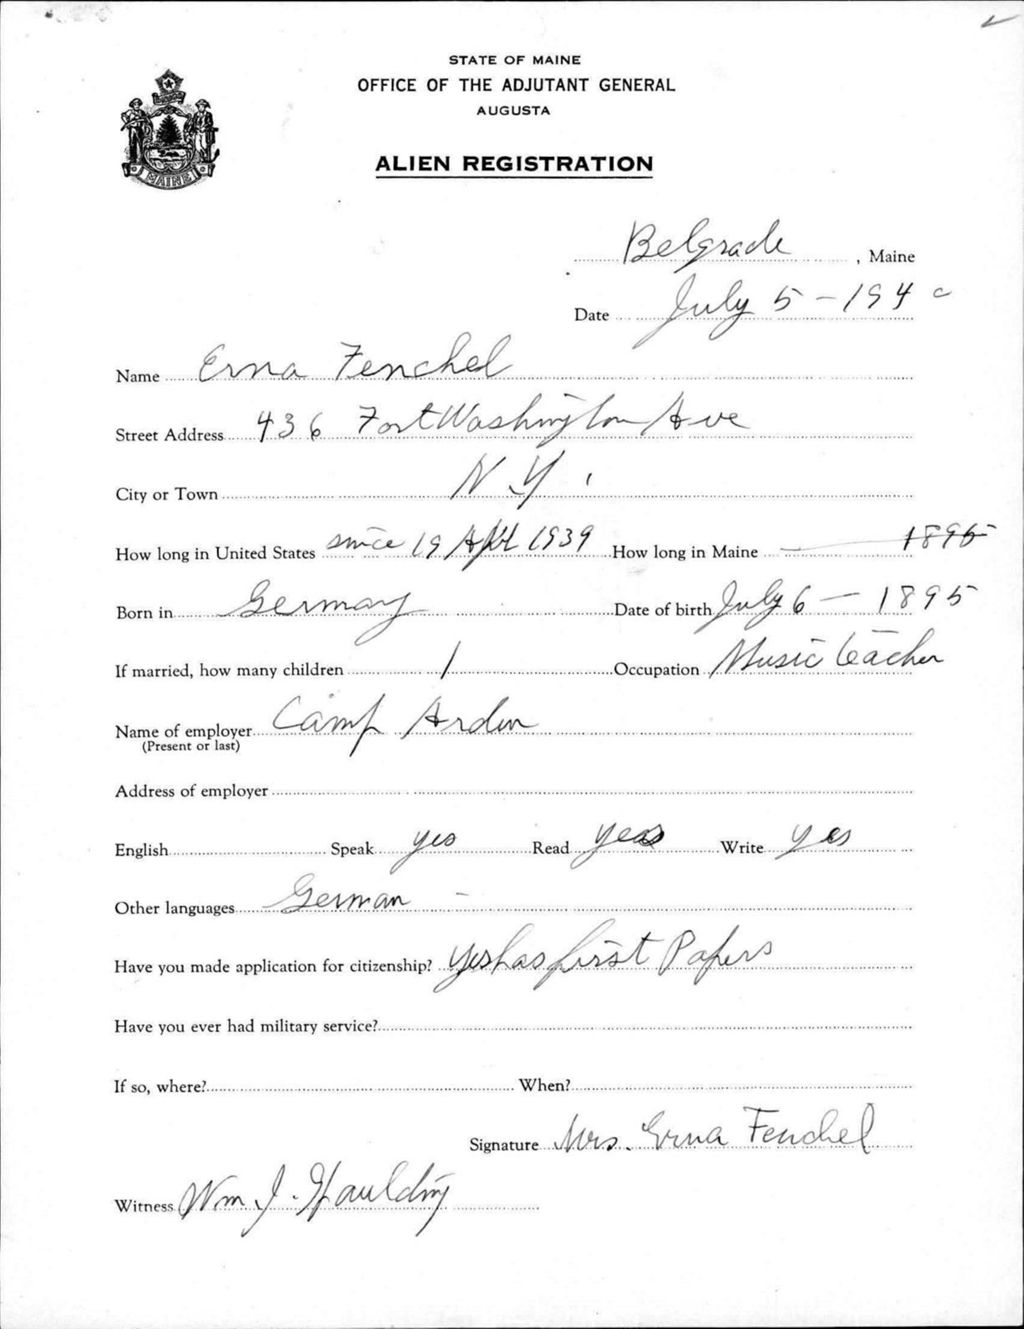 STATE OF MAINE
OFFICE OF THE ADJUTANT GENERAL
AUGUSTA
ALIEN REGISTRATION
MAINE
Belgrade, Maine
Date July 5 - 1940
Name Erna Fenchel
Street Address 436 Fort Washington Ave
City or Town N Y.
How long in United States since 19 April 1939 How long in Maine — 1895
Born in Germany Date of birth July 6 - 1895
If married, how many children 1 Occupation Music teacher
Name of employer Camp Arden
(Present or last)
Address of employer
English Speak yes Read yes Write yes
Other languages German -
Have you made application for citizenship? yes has first Papers
Have you ever had military service?
If so, where? When?
Signature Mrs. Erna Fenchel
Witness Wm J. Spaulding